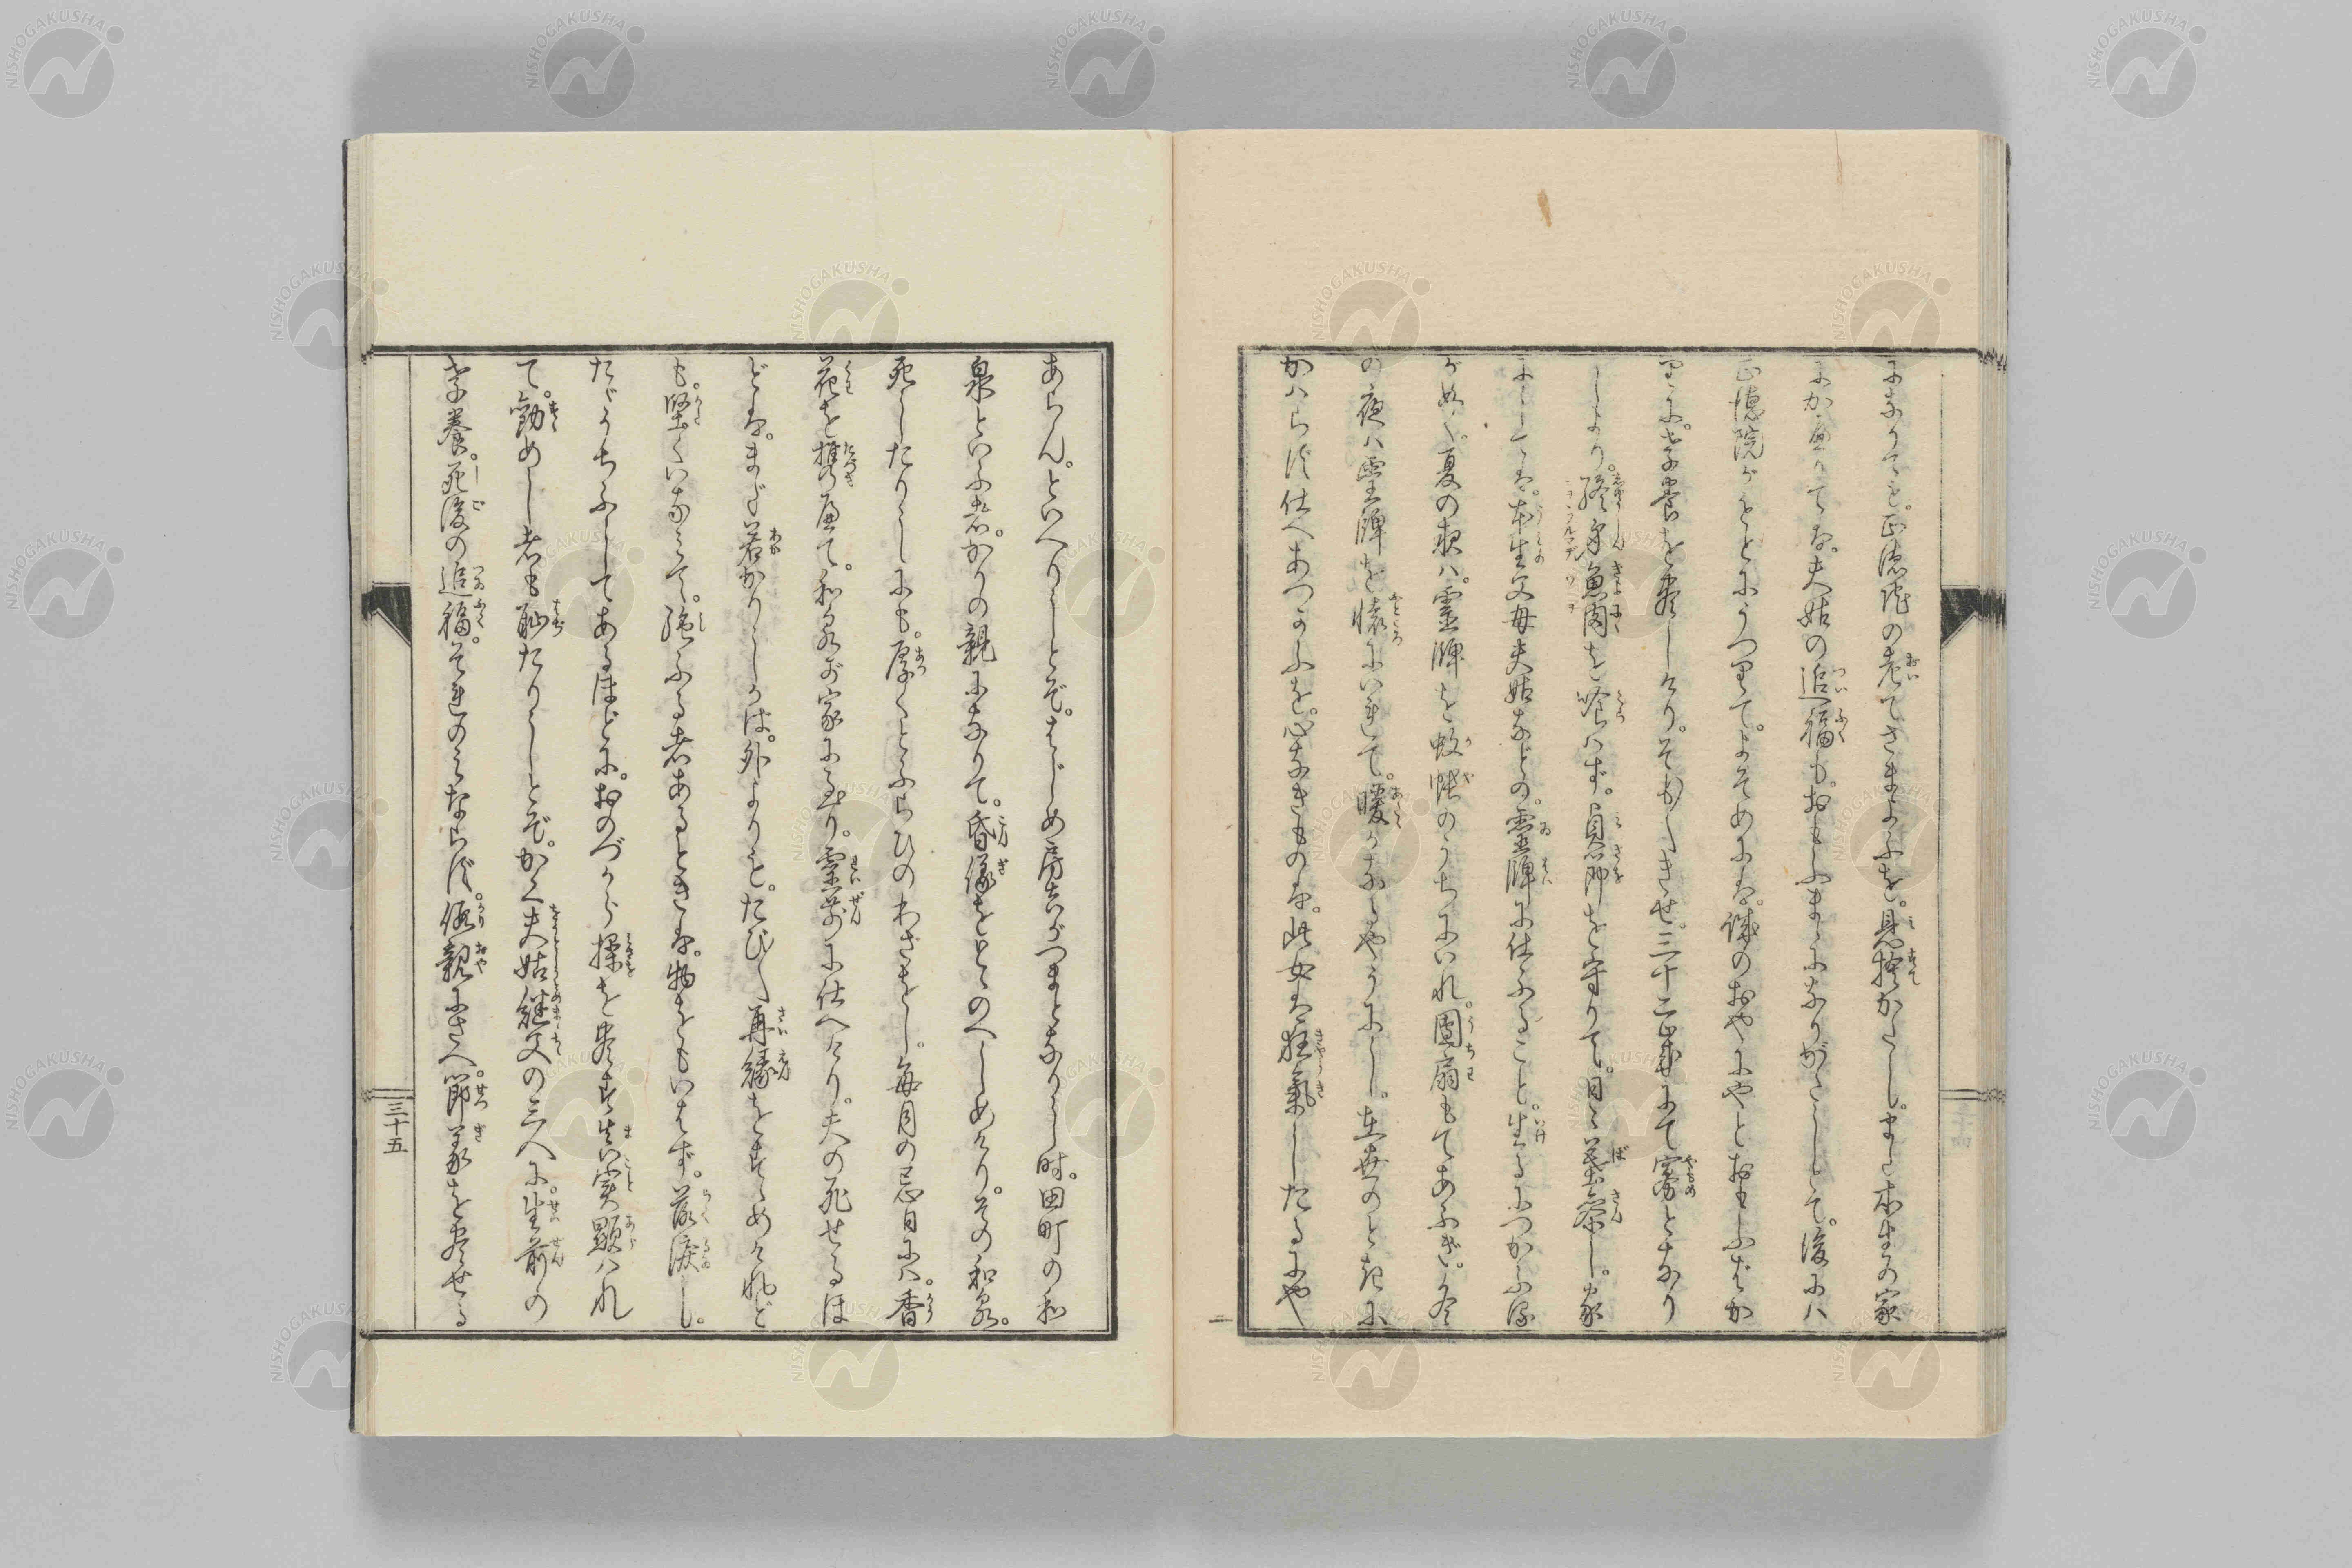 になりても。正徳院の老てさまよふを。見捨かたし。また本生の家
にかへりては。夫姑の追福も。おもふまゝになりがたしとて。後にハ
正徳院がもとにうつりて。よそめには。誠のおやにやとおもふばか
りに。孝養を尽しけり。そも〳〵きせ。三十二歳にて寡となり
しより。終身魚肉を喰ハず。貞節を守りて。日〻墓参し。家
にしては。本生父母夫姑などの。霊牌に仕ふること。生るにつかふる
がめく。夏の夜ハ。霊牌を蚊帳のうちにいれ。團扇もてあふぎ。冬
の夜ハ霊牌を懐にいれて。暖かなるやうにし。在世のときに
かハらず仕へあつかふを。心なきものは。此女は狂氣したるにや
あらん。といへりしとぞ。はじめ房吉がつまとなりし時。田町の和
泉といふ者。かりの親になりて。昏儀をとゝのへしめけり。その和泉。
死したりしにも。厚くとふらひのわざをし。毎月の忌日にハ。香
花を携へて。和泉が家に至り。霊前に仕へけり。夫の死せるほ
どは。まだ若かりしかば。外よりも。たび〳〵再縁をすゝめけれど
も。堅くいなみて。強ふる者あるときは。物をもいはず。落涙し。
たゞうちふしてあるほどに。おのづから操を尽す実顕ハれ
て。勧めし者も恥たりしとぞ。かく夫姑継父の三人に。生前の
孝養。死後の追福。それのみならず。仮親にさへ。節義を尽せる
三十五